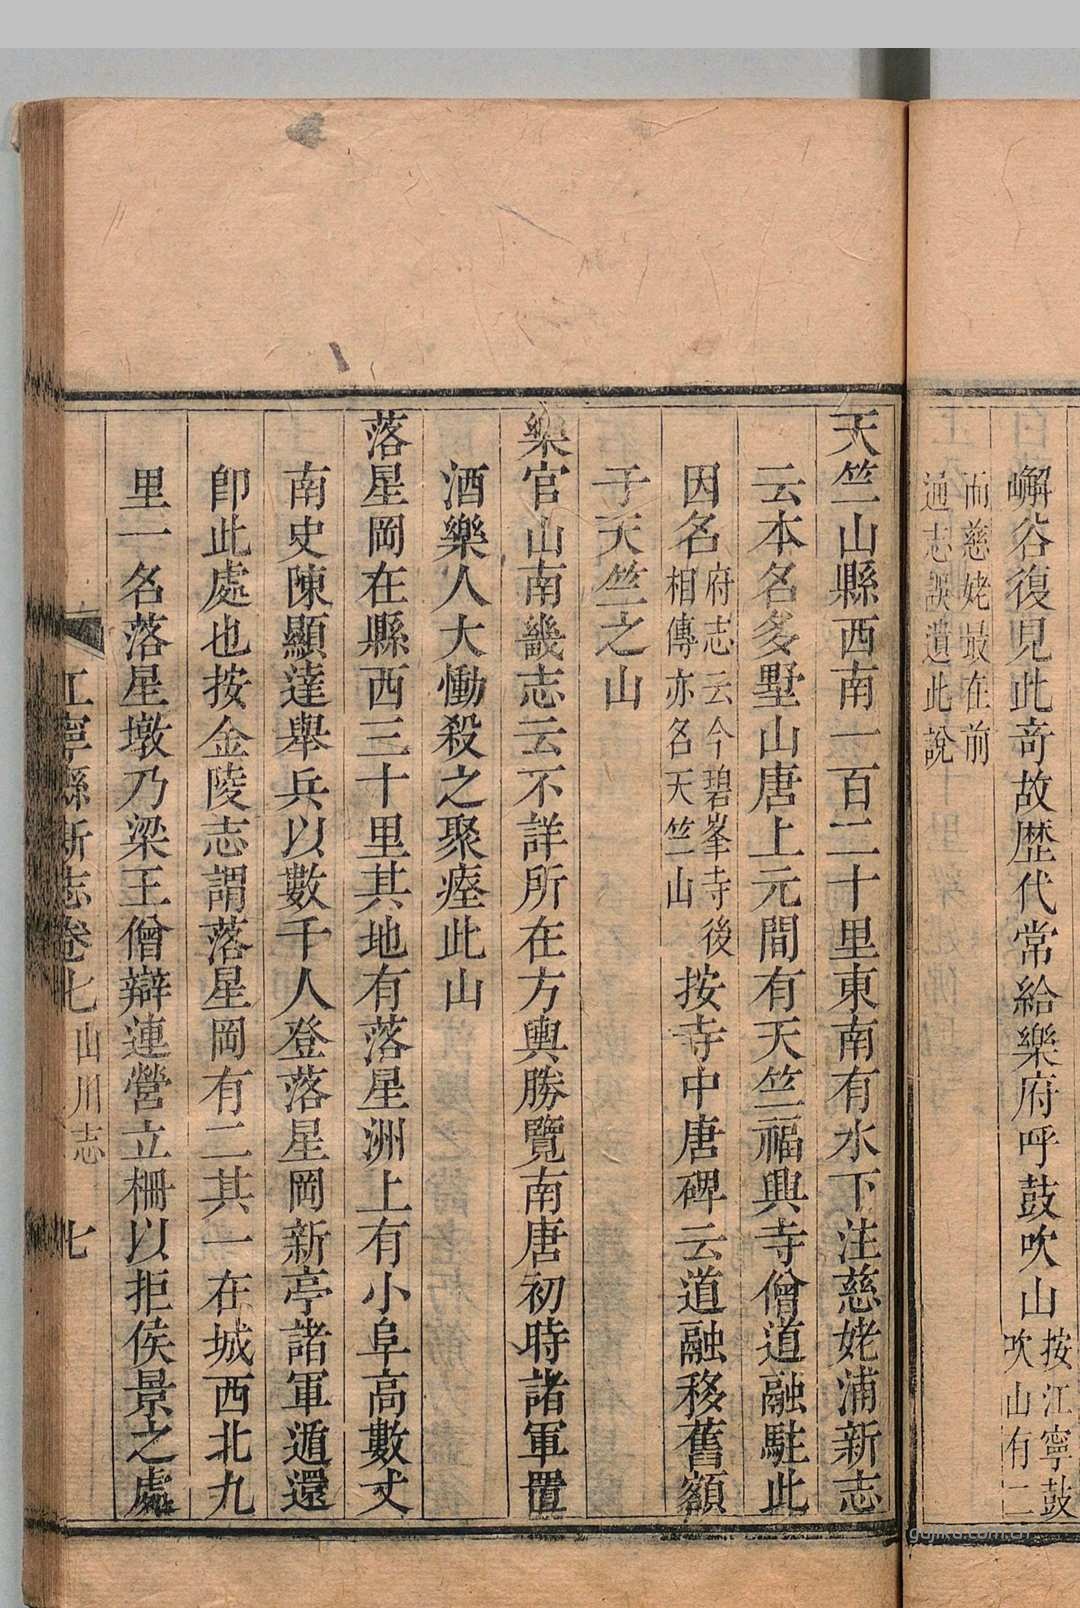 嶰谷復見此奇故歴代常給樂府呼鼓吹山按江寧鼓
吹山有二
而慈姥最在前
通志誤遺此說
天竺山縣西南一百二十里東南有水下注慈姥浦新志
云本名多墅山唐上元間有天竺福興寺僧道融駐此
因名府志云今碧峯寺後
相傳亦名天竺山
按寺中唐碑云道融移舊額
于天竺之山
樂官山南畿志云不詳所在方輿勝覽南唐初時諸軍置
酒樂人大慟殺之聚瘞此山
落星岡在縣西三十里其地有落星洲上有小阜高數丈
南史陳顯達舉兵以數千人登落星岡新亭諸軍遁還
卽此處也按金陵志謂落星岡有二其一在城西北九
里一名落星墩乃梁王僧辯連營立柵以拒侯景之處
江寧縣新志卷七山川志 七
gujiku.com.cn